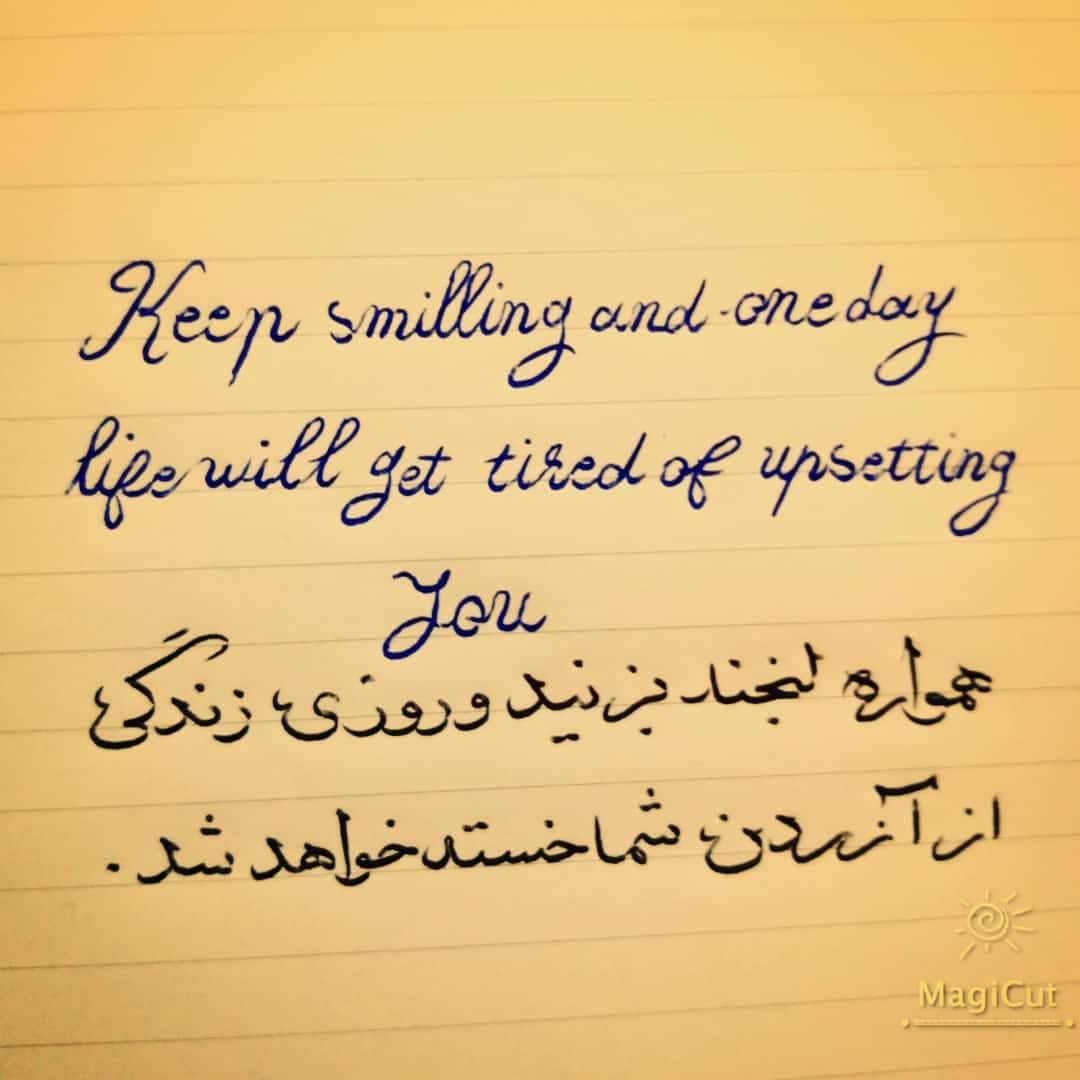 Keep smilling and one day
life will get tired of upsetting
You
همواره لبخند بزنید و روزی زندگی
از آزردن شما خسته خواهد شد.
MagiCut